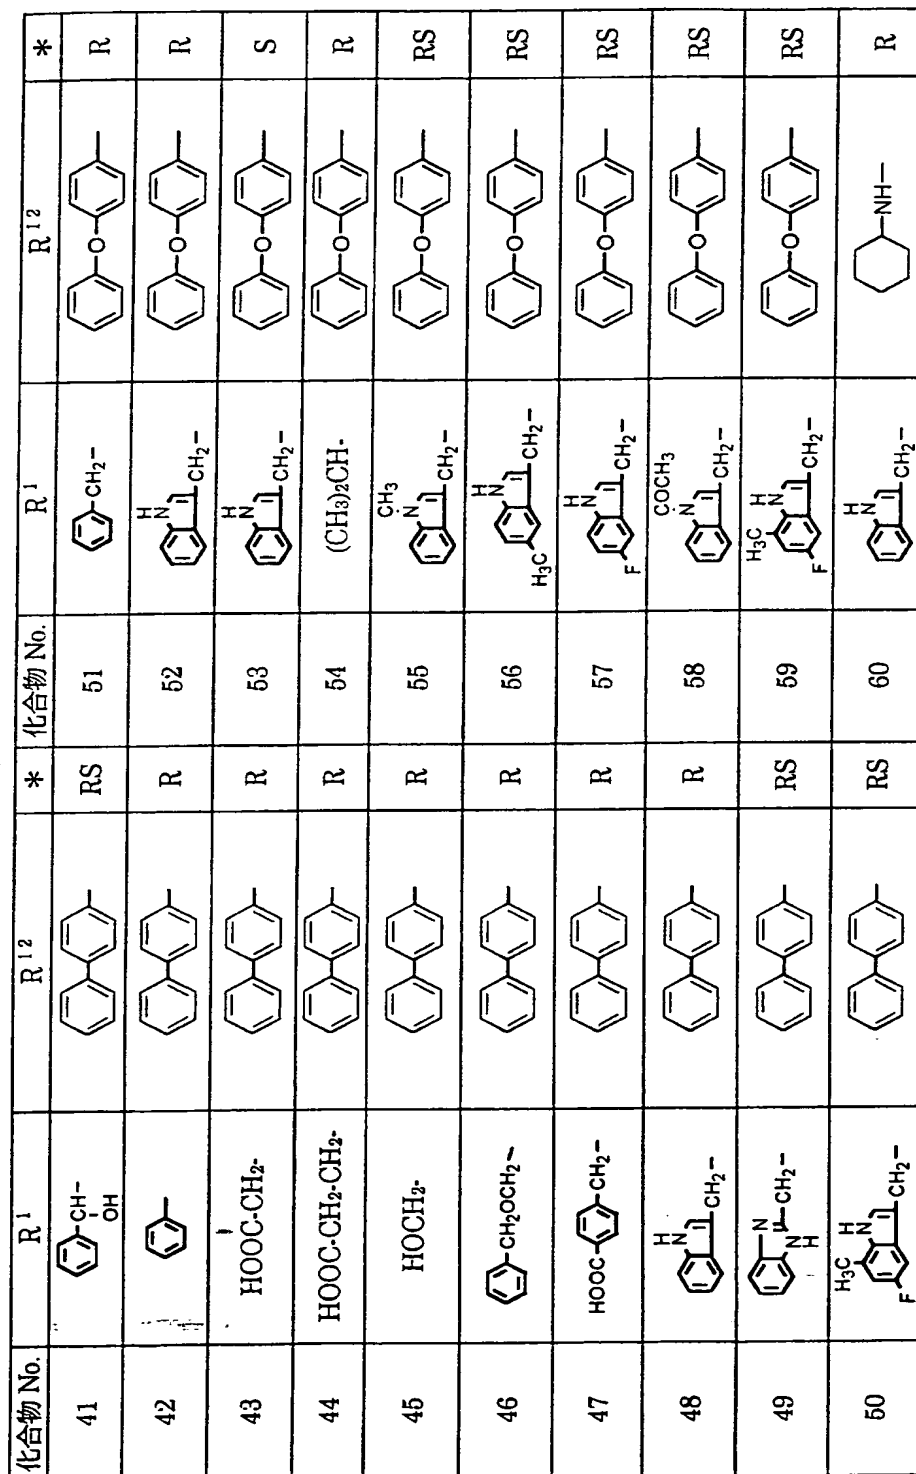 化合物 No. R¹ R¹² * 化合物 No. R¹ R¹² *
41 CH- OH RS 51 CH₂- R
42 R 52 H N CH₂- O R
43 HOOC-CH₂- R 53 H N CH₂- O S
44 HOOC-CH₂-CH₂- R 54 (CH₃)₂CH- O R
45 HOCH₂- R 55 CH₃ N CH₂- O RS
46 CH₂OCH₂- R 56 H N CH₂- H₃C O RS
47 HOOC CH₂- R 57 H N CH₂- F O RS
48 H N CH₂- R 58 COCH₃ N CH₂- O RS
49 N CH₂- N H RS 59 H₃C H N CH₂- F O RS
50 H₃C H N CH₂- F RS 60 H N CH₂- NH- R